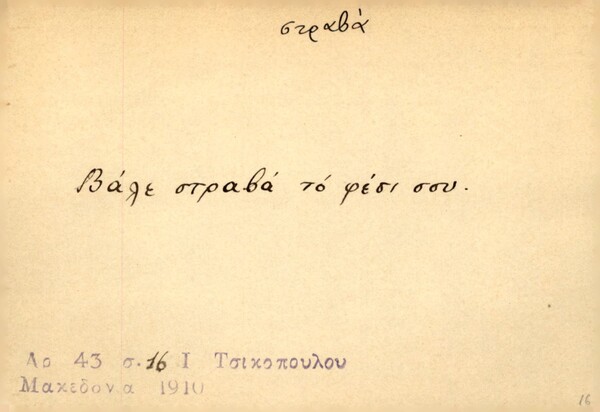 στραβά
Βάλε στραβά τό φέσι σου.
Αρ 43 σ. 16 Ι Τσικοπουλου
Μακεδονια 1910
16